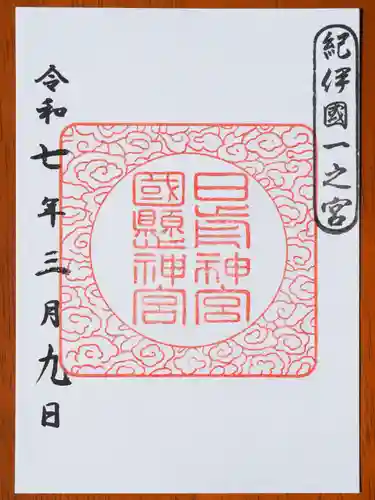 紀伊國一之宮
日前神宮
國懸神宮
令和七年三月九日